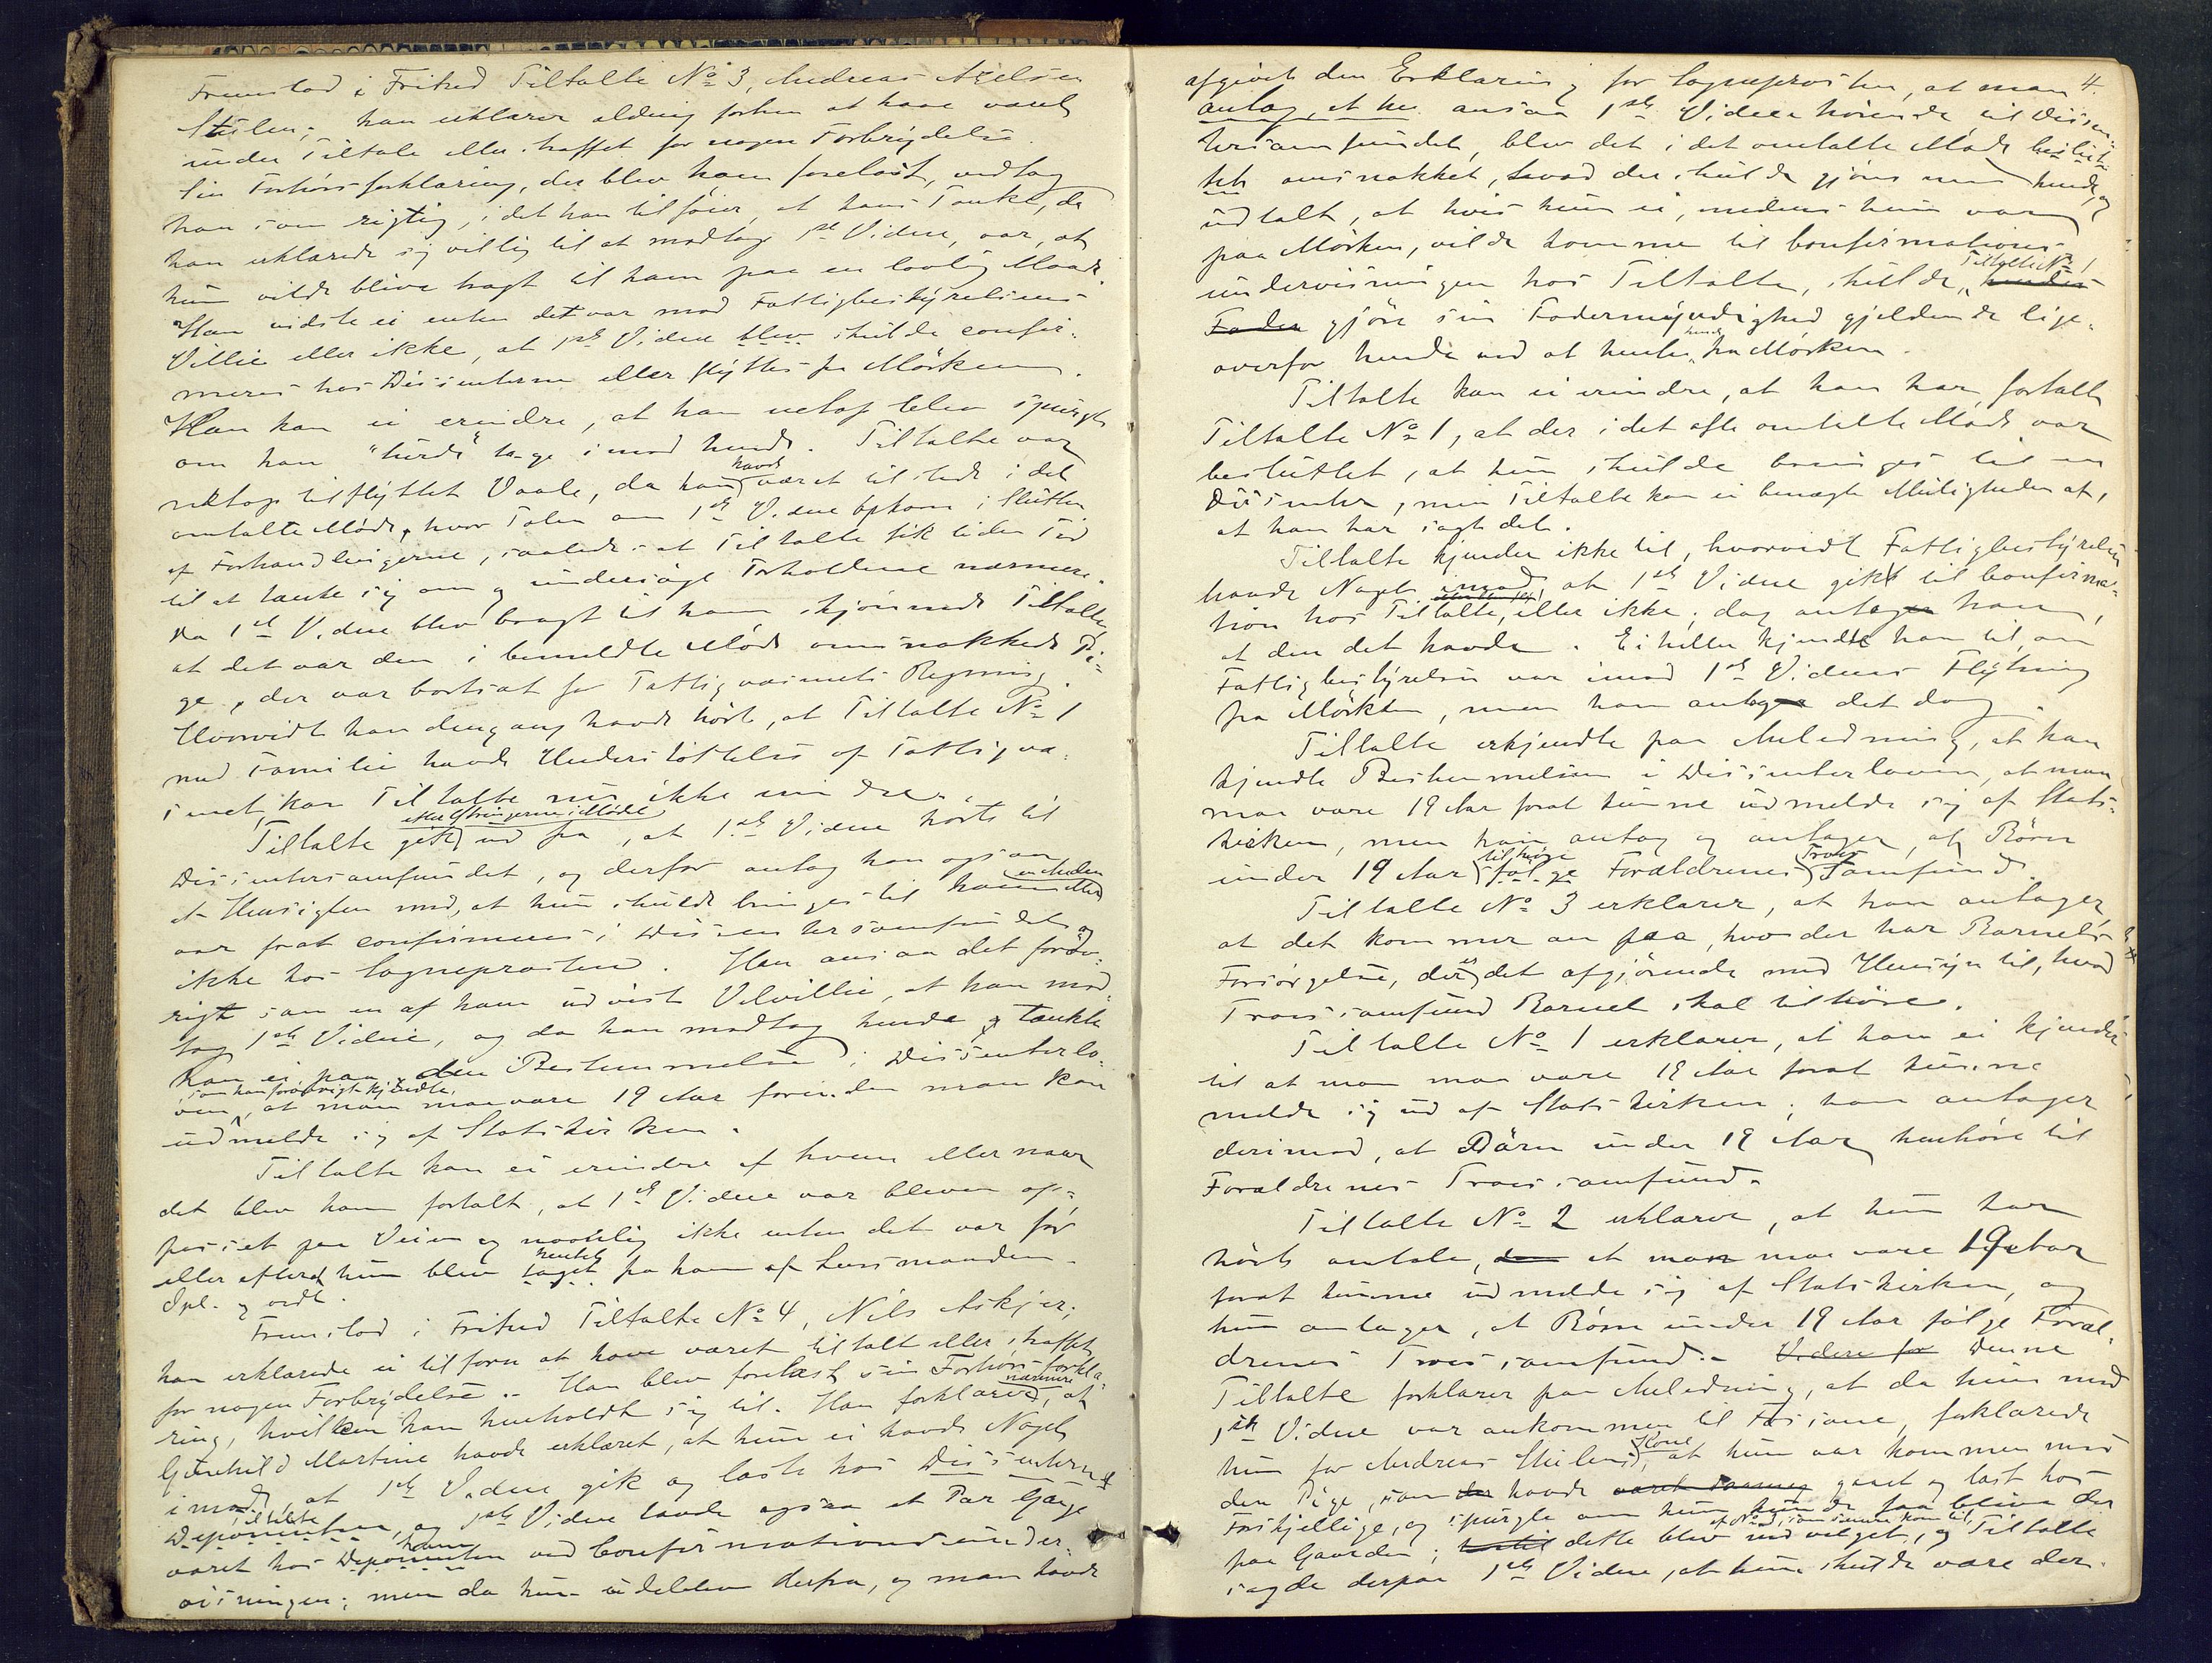 Fremstod i Frihed Tiltalte No 3, Andreas Axelsen
Stulen; han erklærer aldrig forhen at have været
under Tiltale eller straffet for nogen Forbrydelse.
Sin Forhørsforklaring, der blev ham forelæst, vedtog
han som rigtig, idet han tilføier, at hans Tanke, da
han erklærede sig villig til at modtage 1ste Vidne, var, at
hun vilde blive bragt til ham paa en lovlig Maade.
Han vidste ei enten det var mod Fattigbestyrelsens
Villie eller ikke, at 1ste Vidne blev skulde confir-
meres hos Dissenterne eller flyttes fra Mörken.
Han kan ei erindre, at han netop blev spurgt
om han "turde" tage imod hende. Tiltalte var
netop tilflyttet Vaale, da han havde været tilstede i det
omtalte Møde, hvor Talen om 1ste Vidne opkom i Slutten
af Forhandlingerne, saaledes at Tiltalte fik liden Tid
til at tænke sig om og undersøge Forholdene nærmere.
Da 1ste Vidne blev bragt til ham skjønnede Tiltalte,
at det var den i bemeldte Møde omsnakkede Pi-
ge, der var bortsat for Fattigvæsenets Regning.
Hvorvidt han dengang havde hørt, at Tiltalte No 1
med Familie havde Understøttelse af Fattigvæ-
senet, kan Tiltalte nu ikke erindre.
Tiltalte gik efter Ytringerne i Mødet ud fra, at 1ste Vidne hørte til
Dissentersamfundet, og derfor antog han ogsaa
at Hensigten med, at hun skulde bringes til ham eller en Anden
var forat confirmeres i Dissentersamfundet og
ikke hos Sogneprosten. Han ansaa det forøv-
rigt som en af ham udvist Velvillie, at han mod-
tog 1ste Vidne, og da han modtog hende tænkte
han ei paa den Bestemmelse i Dissenterlo-
ven, som han forøvrigt kjendte, at man maa være 19 Aar forinden man kan
udmelde sig af Statskirken.
Tiltalte kan ei erindre af hvem eller naar
det blev ham fortalt, at 1ste Vidne var bleven op-
passet paa Veien og navnlig ikke enten det var før
eller efterat hun blev taget hentet fra ham af Lensmanden.
Opl. og vedt.
Fremstod i Frihed Tiltalte No 4, Nils Askjer;
han erklærede ei tilforn at have været tiltalt eller straffet
for nogen Forbrydelse. Han blev forelæst sin Forhørsforkla-
ring, hvilken han henholdt sig til. Han forklarede nærmere, at
Gunhild Martine havde erklæret, at hun ei havde Noget
imod, at 1ste Vidne gik og læste hos Dissenterne
Deponenten Tiltalte, og 1ste Vidne havde ogsaa et Par Gange
været hos Deponenten ham ved Confirmationsunder-
visningen; men da hun udeblev derfra, og man havde
4.
afgivet den Erklæring for Sogneprosten, at man
antog, at han ansaa 1ste Vidne hørende til Dissen-
tersamfundet, blev det i det omtalte Møde beslut-
tet omsnakket, hvad der skulde gjøres med hende, og
udtalt, at hvis hun ei, medens hun var
paa Mörken, vilde komme til Confirmations-
undervisningen hos Tiltalte, skulde Tiltalte No 1 hendes
Fader gjøre sin Fadermyndighed gjeldende lige-
overfor hende ved at hente hende fra Mörken.
Tiltalte kan ei erindre, at han har fortalt
Tiltalte No 1, at der i det ofte omtalte Møde var
besluttet, at hun skulde bringes til en
Dissenter, men Tiltalte kan ei benægte Muligheden af,
at han har sagt det.
Tiltalte kjender ikke til, hvorvidt Fattigbestyrelsen
havde Noget imod, at 1ste Vidne gik til Confirma-
tion hos Tiltalte, eller ikke; dog antager han,
at den det havde. Ei heller kjendte han til, om
Fattigbestyrelsen var imod 1ste Vidnes Flytning
fra Mörken, men han antager det dog.
Tiltalte erkjendte paa Anledning, at han
kjendte Bestemmelsen i Dissenterloven, at man
maa være 19 Aar forat kunne udmelde sig af Stats-
kirken, men han antog og antager, at Børn
under 19 Aar følge tilhøre Forældrenes Tros Samfund.
Tiltalte No 3 erklærer, at han antager,
at det kommer an paa, hvo der har Barnets
Forsørgelse, der er det afgjørende med Hensyn til, hvad
Trossamfund Barnet skal tilhøre.
Tiltalte No 1 erklærer, at han ei kjendte
til at man maa være 19 Aar forat kunne
melde sig ud af Statskirken; han antager
derimod, at Børn under 19 Aar henhøre til
Forældrenes Trossamfund.
Tiltalte No 2 erklærer, at hun har
hørt omtale, at man maa være 19 Aar
forat kunne udmelde sig af Statskirken, og
hun antager, at Børn under 19 Aar følge Foræl-
drenes Trossamfund. Videre for Denne
Tiltalte forklarer paa Anledning, at da hun med
1ste Vidne var ankommen til Fossane, forklarede
hun for Andreas Stulens Kone, at hun var kommen med
den Pige, som havde gaaet og læst hos
Forskjellige, og spurgte om hun kunde faa blive der
paa Gaarden; dette blev af No 3, som senere kom til, indvilget, og Tiltalte
sagde derpaa 1ste Vidne, at hun skulde være der.